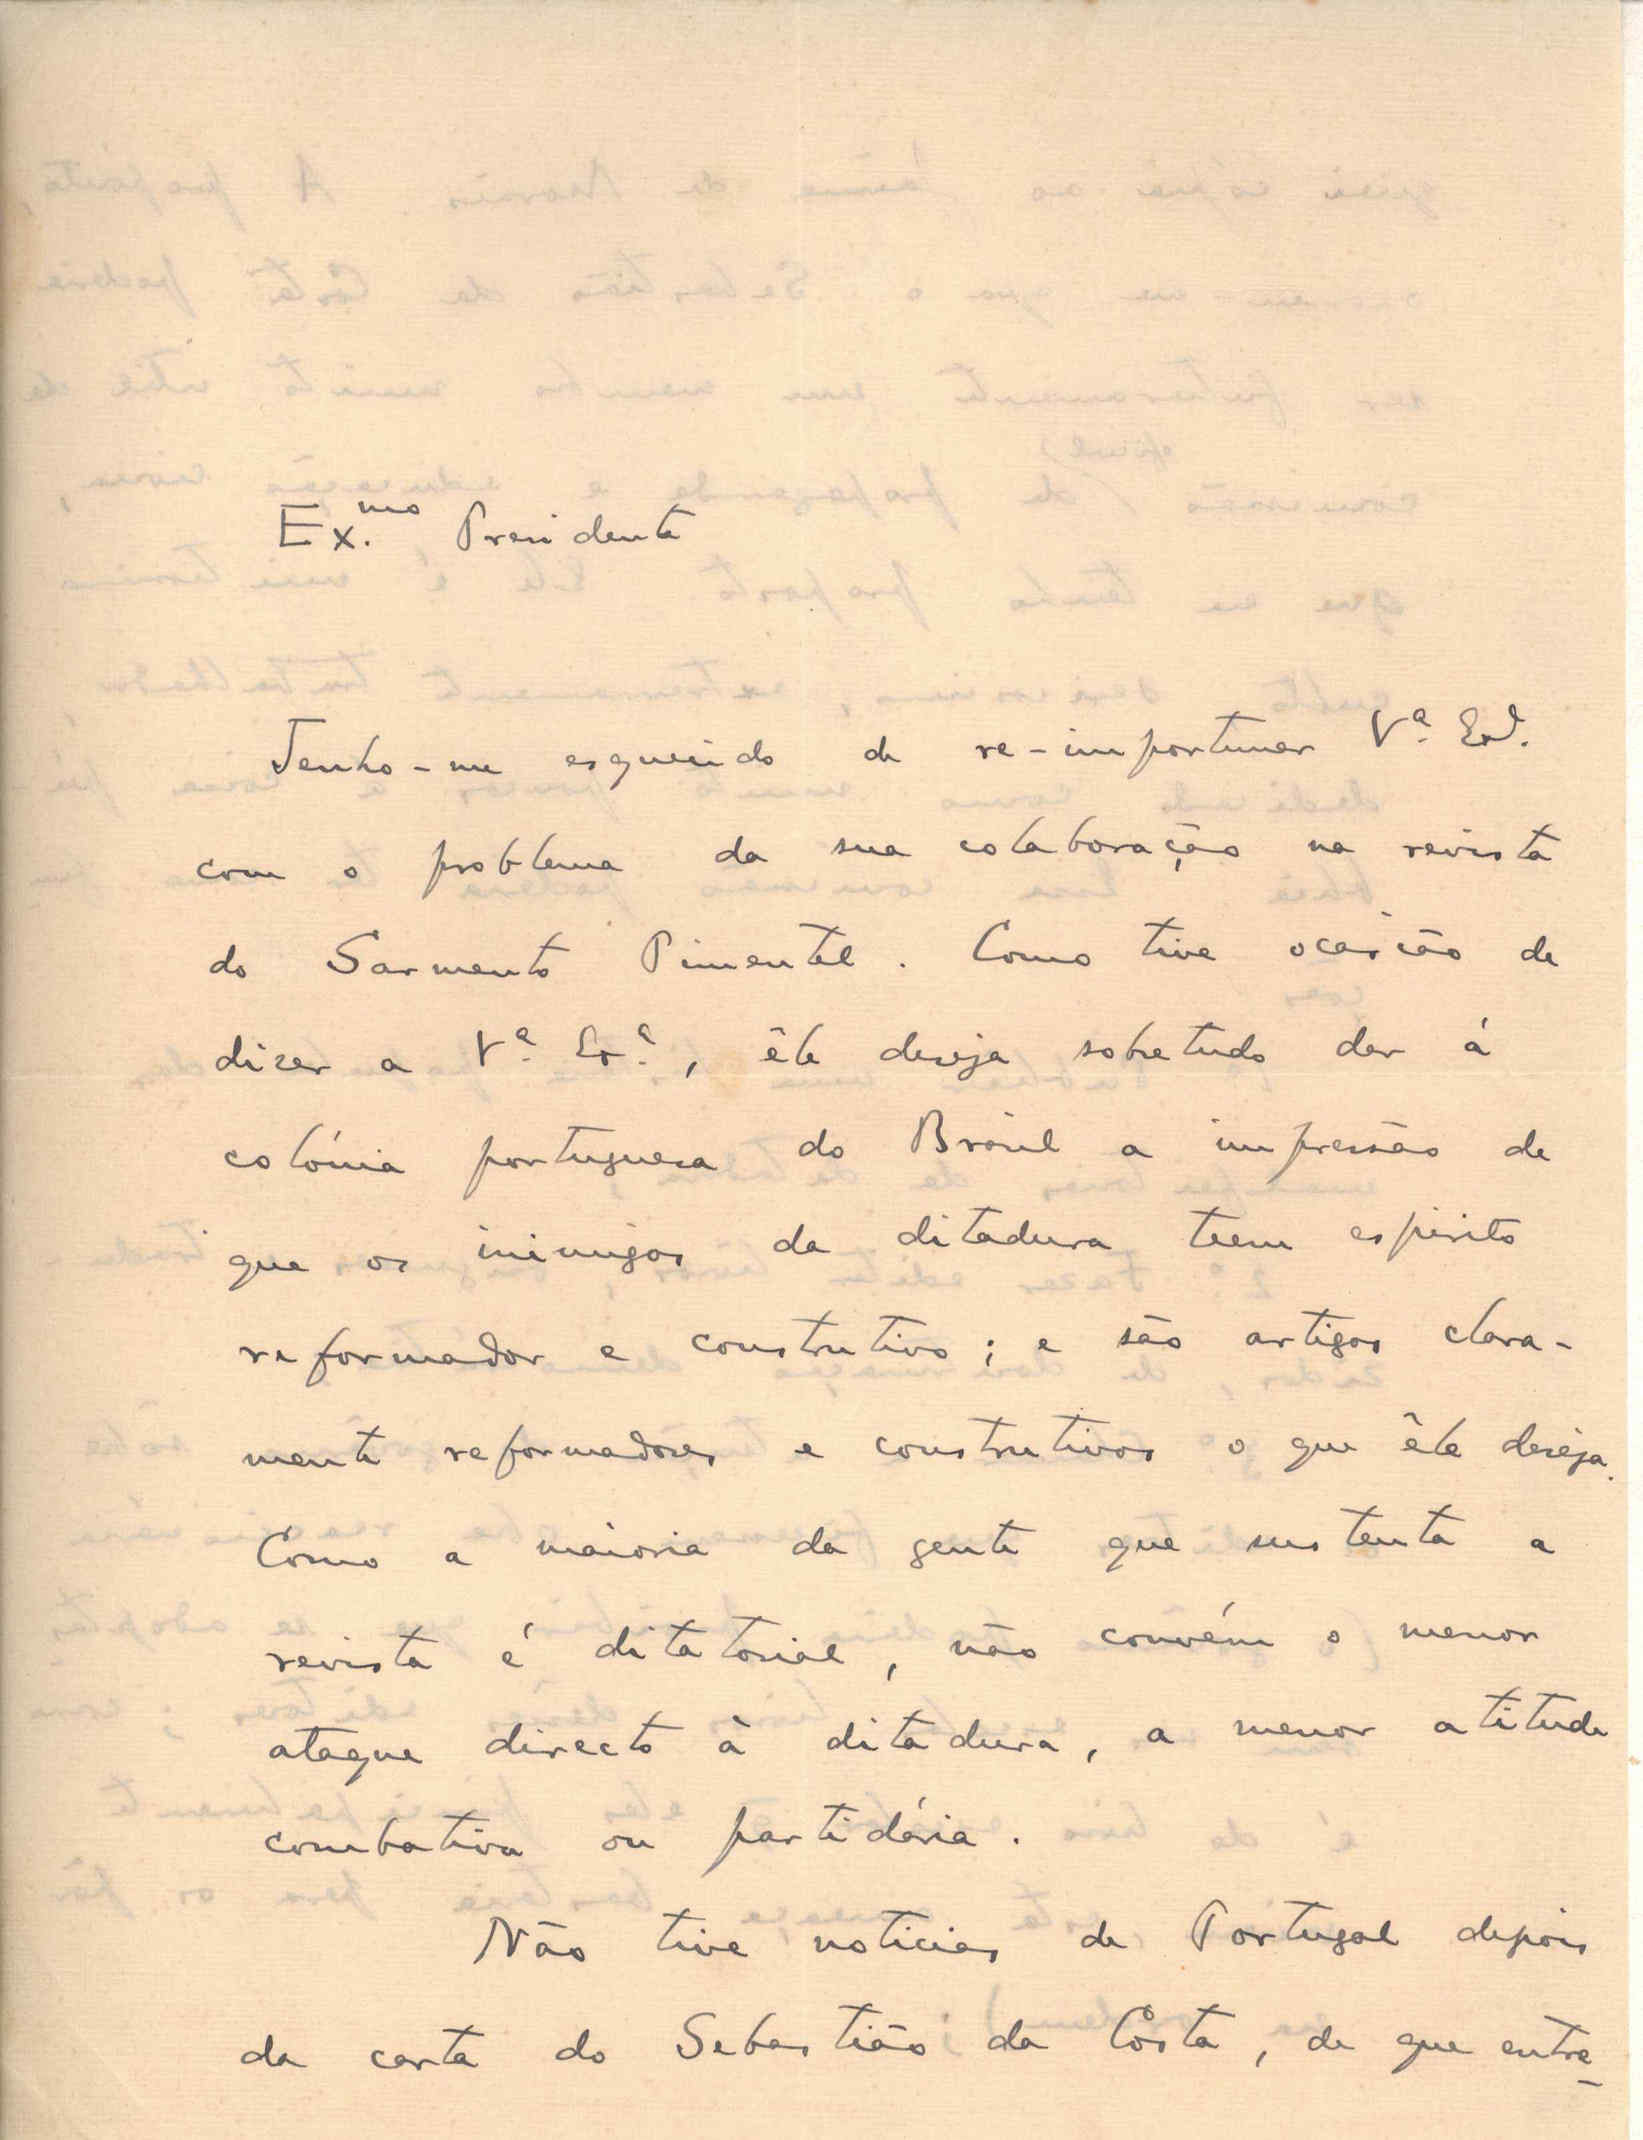 Ex.mo Presidente
Tenho-me esquecido de re-importunar V.ª Ex.ª
com o problema da sua colaboração na revista
do Sarmento Pimentel. Como tive ocasião de
dizer a V.ª Ex.ª, êle deseja sobretudo dar á
colónia portuguesa do Brásil a impressão de
que os inimigos da ditadura teem espírito
reformador e construtivo; e são artigos clara-
mente reformadores e construtivos o que êle deseja.
Como a maioria da gente que sustenta a
revista é ditatorial, não convém o menor
ataque directo à ditadura, a menor atitude
combativa ou partidária.
Não tive noticias de Portugal depois
da carta do Sebastião da Costa, de que entre-